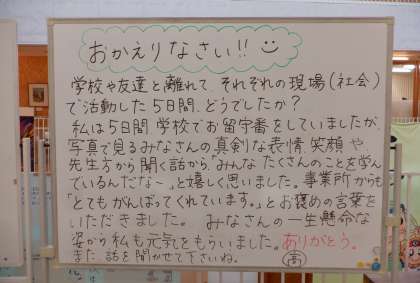 おかえりなさい!!
学校や友達と離れて、それぞれの現場(社会)
で活動した5日間、どうでしたか?
私は5日間学校でお留守番をしていましたが、
写真で見るみなさんの真剣な表情、笑顔や、
先生方から聞く話から「みんなたくさんのことを学ん
でいるんだな〜」と嬉しく思いました。事業所からも
「とてもがんばってくれています。」とお褒めの言葉を
いただきました。 みなさんの一生懸命な
姿から私も元気をもらいました。ありがとう。
また、話を聞かせて下さいね。 高